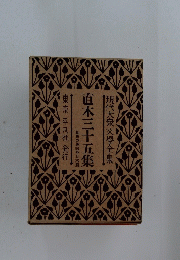 現代大衆文學全集
直木三十五集
東京 平凡社 發行